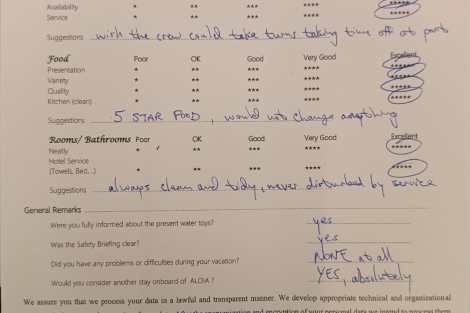 Availability * ** *** **** *****
Service * ** *** **** *****
Suggestions wish the crew could take turns taking time off at ports
Food Poor OK Good Very Good Excellent
Presentation * ** *** **** *****
Variety * ** *** **** *****
Quality * ** *** **** *****
Kitchen (clean) * ** *** **** *****
Suggestions 5 STAR FOOD, would not change anything
Rooms/ Bathrooms Poor OK Good Very Good Excellent
Neatly * ** *** **** *****
Hotel Service
(Towels, Bed,..) * ** *** **** *****
Suggestions always clean and tidy, never disturbed by service
General Remarks
Were you fully informed about the present water toys? yes
Was the Safety Briefing clear? yes
Did you have any problems or difficulties during your vacation? NONE at all
Would you consider another stay onboard of ALOIA ? YES, absolutely
We assure you that we process your data in a lawful and transparent manner. We develop appropriate technical and organizational
of your personal data we intend to process them